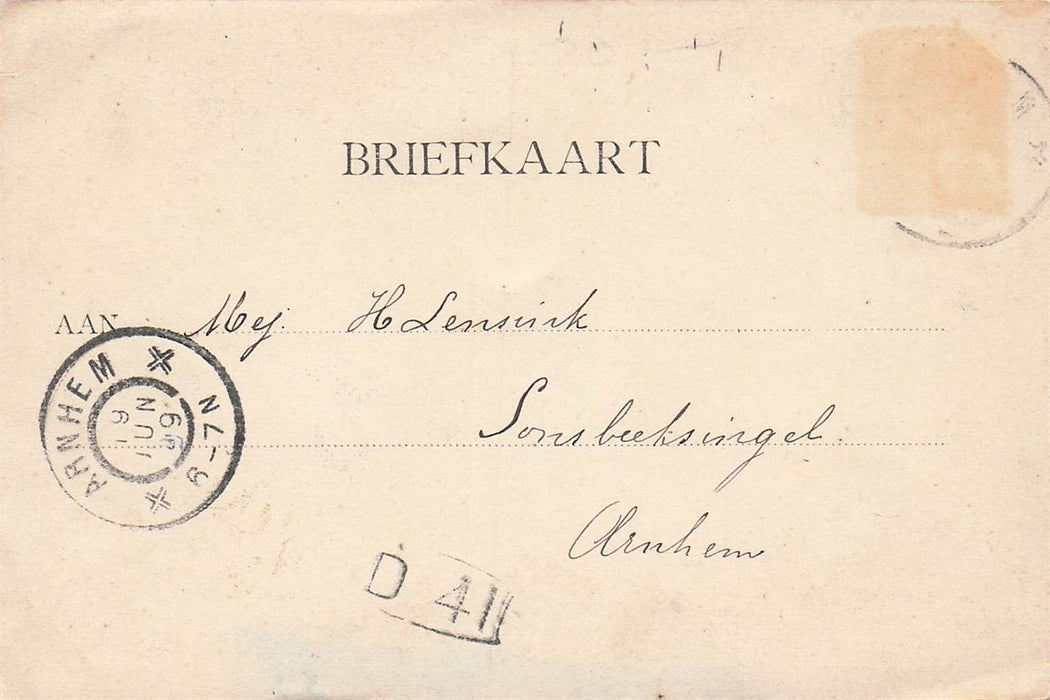 BRIEFKAART
AAN Mej. H Lensink
Sonsbeeksingel.
Arnhem
ARNHEM
19 JUN
6-7N
D 41